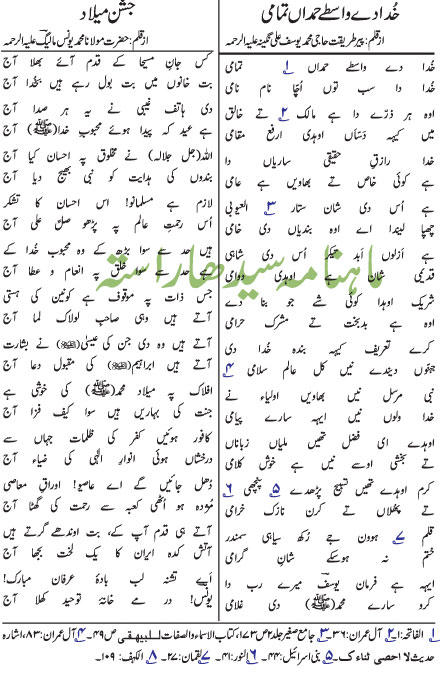 خُدا دے واسطے حمداں تمامی
از قلم: پیر طریقت حاجی محمد یوسف علی نگینہ علیہ الرحمہ
خُدا دے واسطے حمداں ۱ تمامی
خُدا دا سب توں اُچّا نام نامی
اوہ ہر ذرّے دا ہے مالک ۲ تے خالق
میں کیہہ دَسّاں اوہدی ارفع مقامی
خُدا رازقِ حقیقی ساریاں دا
ہے کوئی خاص تے بھاویں ہے عامی
ہے اُس دی شان ستار ۳ العیوبی
چھپا لیندا اے اوہ بندیاں دی خامی
ہے اَزلوں اَبد تیکر اُس دی شاہی
قدیمی شان ہے اوہدی دوامی
شریک اوہدا کوئی شے جو بنا دے
ہے اوہ بدبخت تے مشرک حرامی
کرے تعریف کیہہ بندہ خُدا دی
جہنوں دیندے نیں کل عالم سلامی ۴
نبی مرسل نیں بھاویں اولیاء نے
خدا ولوں نیں ایہہ سارے پیامی
اوہدے ای فضل تھیں ملیاں زباناں
تے بخشی اوسے نیں ہے خوش کلامی
کرم اوہدے تھیں تسبیح پڑھدے ۵ پنچھی ۶
تے پھلاں تے کرن نازک خرامی
قلم ۷ ہوون جے رُکھ سیاہی سمندر
ختم نہ ہوسکے شانِ گرامی
ایہہ ہے فرمان یوسفؔ میرے رب دا
کرو سارے محمد(ﷺ) دی غلامی
جشن میلاد
از قلم: حضرت مولانا محمد یونس مالیگؔ علیہ الرحمہ
کس جانِ مسیحا کے قدم آئے بھلا آج
بت خانوں میں بت بول رہے ہیں بخدا آج
دی ہاتف غیبی نے یہ ہر صدا آج
ہے عید کہ پیدا ہوئے محبوبِ خدا(ﷺ) آج
اللہ(جل جلالہ) نے مخلوق پہ احسان کیا آج
بندوں کی ہدایت کو نبی بھیج دیا آج
لازم ہے مسلمانو! اس احسان کا تشکر
اُس رحمتِ عالم پہ پڑھو صلِّ علیٰ آج
ہیں حد سے سوا بڑھ کے وہ محبوب خُدا کے
ہے حد سے سوا خلق پہ انعام و عطا آج
جس ذات پہ موقوف ہے کونین کی ہستی
آتے ہیں وہی صاحبِ لولاک لما آج
آتے ہیں وہ دی جن کی عیسیٰ(ؑ) نے بشارت
آتے ہیں ابراہیم(ؑ) کی مقبول دعا آج
افلاک پہ میلاد محمد(ﷺ) کی خوشی ہے
جنت کی بہاریں ہیں سوا کیف فزا آج
کافور ہوئیں کفر کی ظلمات جہاں سے
درخشاں ہوئی انوارِ الٰہی کی ضیاء آج
دُھل جائیں گے اے عاصیو! اوراقِ معاصی
مژدہ ہو اُٹھی کعبہ سے رحمت کی گھٹا آج
آتے ہی قدم آپ کے، بت اوندھے گرتے ہیں
آتش کدہ ایران کا یک لخت بجھا آج
اَے تشنہ لب بادۂ عرفان مبارک!
یونسؔ! در مے خانۂ توحید کھلا آج
ماہنامہ سیدھا راستہ
۱ الفاتحہ:۱ ۲ آل عمران:۳۶ ۳ جامع صغیر جلد۲ ص۱۷۳، کتاب الاسماء والصفات للبیہقی ص۴۹۔ ۴ آل عمران:۸۳، اشارہ
حدیث لا احصی ثناء ک۔ ۵ بنی اسرائیل:۴۴۔ ۶ النور:۴۱۔ ۷ لقمان:۲۷۔ ۸ الکہف:۱۰۹۔